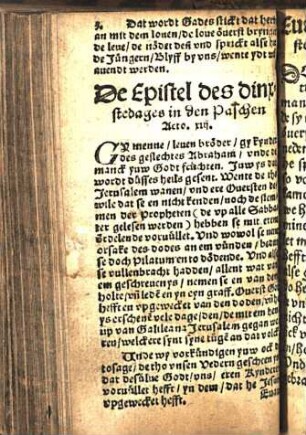 3. Dat wordt Gades stickt dat herte
an mit dem lonen/ de loue öuerst bryngt
de leue/ de nödet den vnd sprickt alse
de Jüngern/ Blyff by vns/ wente ydt
auendt werden.
De Epistel des dinx-
stedages in den Paschen
Acto. xiij.
GY menne/ leuen bröder/ gy kynder
des geslechtes Abraham/ vnde de
manck yuw Godt früchten. Juw ys dat
wordt düsses heils gesent. Wente de tho
Jerusalem wanen/ vnd ere Ouersten de
wile dat se en nicht kenden/ noch de stem-
men der Propheten (de vp alle Sabba
ter gelesen werden) hebben se mit erem
ordelende voruüllet. Vnd wowol se nene
orsake des dodes an em vünden/ beden
se doch Pilatum en to dödende. Vnd alse
se vullenbracht hadden/ allent wat van
em geschreuen ys/ nemen se en van dem
holte/ vñ leden en yn eyn graff. Ouerst Godt
hefft en vpgewecket van den doden/ vñ he
ys erschenen vele dage/ den/ de mit em hen
up van Galilea na Jerusalem gegan we-
ren/ welckere synt syne tüge an dat volck
Vnde wy vorkündigen yuw ock de
tosage/ de tho vnsen Vedern gescheen ys
dat desülue Godt/ vns/ eren Kyndern
voruüllet hefft/ yn dem/ dat he Jesum
vpgewecket hefft.